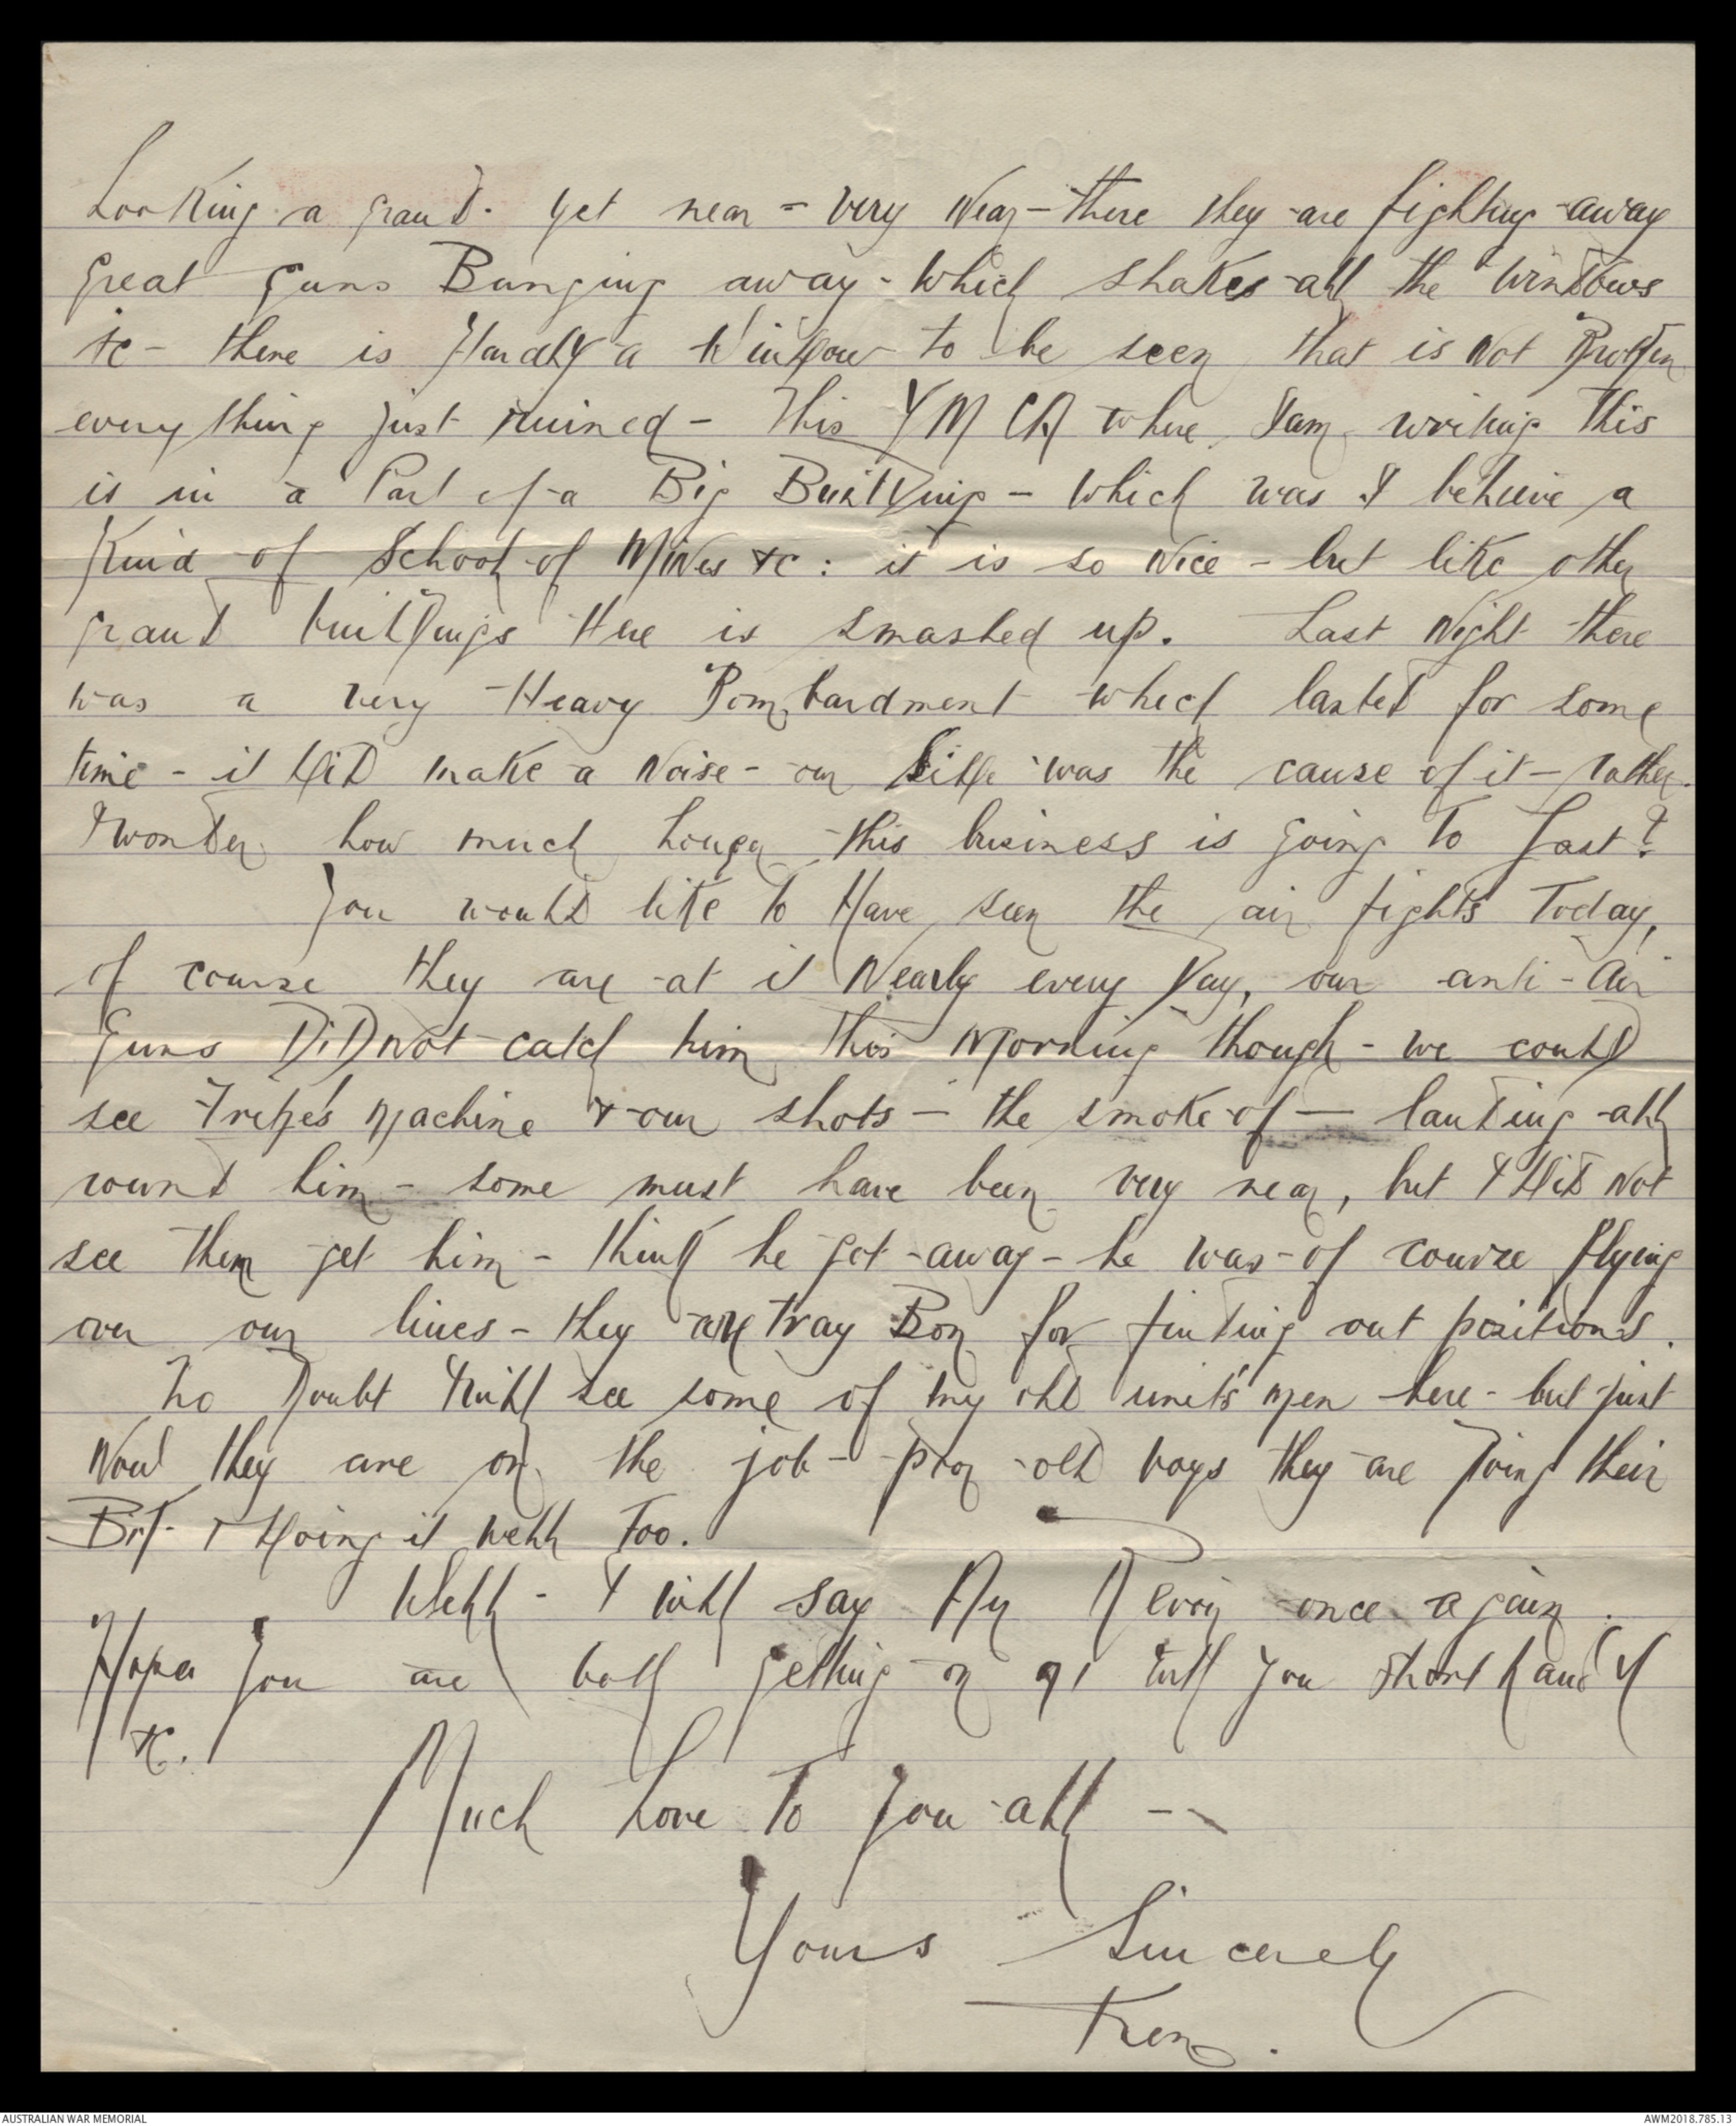 Looking a grand. yet near - very Near - there they are fighting away
great guns Banging away - which shakes all the windows
&c - there is Hardly a window to be seen that is Not Broken
every thing just ruined - This YMCA where I am writing this
is in a Part of a Big Building - which was I believe a
Kind of School of Mines &c : it is so Nice - but like other
grand buildings Here is smashed up. Last Night there
was a very Heavy Bombardment which lasted for some
time - it did make a Noise - our side was the cause of it - rather.
I wonder how much Longer this business is going to Last?
You would like to Have seen the air fights Today,
of course they are at it Nearly every Day, our anti-air
Guns Did not catch him this Morning though - we could
see Fritze's Machine & our shots - the smoke of - landing all
round him - some must have been very near, but I did Not
see them get him - think he got away - he was of course flying
over our lines - they are tray Bon for finding out positions.
No Doubt I will see some of my old unit's men here - but just
Now they are on the job - poor old boys they are Doing their
Bit - & doing it well Too.
Well - I will say Au Revoir once again.
Hope you are both getting on with you short hand
&c.
Much Love To You all --
Yours Sincerely
Ken.
AUSTRALIAN WAR MEMORIAL
AWM2018.785.13